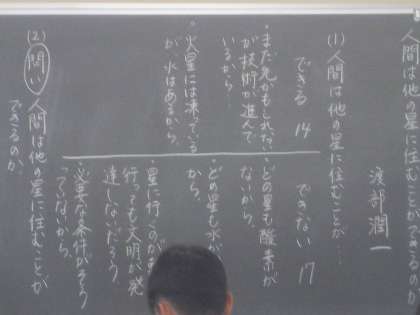 人間は他の星に住むことができるのか
渡部潤一
(1) 人間は他の星に住むことが…
できる 14
・まだ先かもしれない
が技術が進んで
いるから…
・火星には凍っている
が水はあるから。
できない 17
・どの星も酸素が
ないから。
・どの星も水が
から。
・星に行くのが
行っても文明が発
達しないだろう。
必要な条件がそろ
ってないから。
(2) 問い 人間は他の星に住むことが
できるのか。